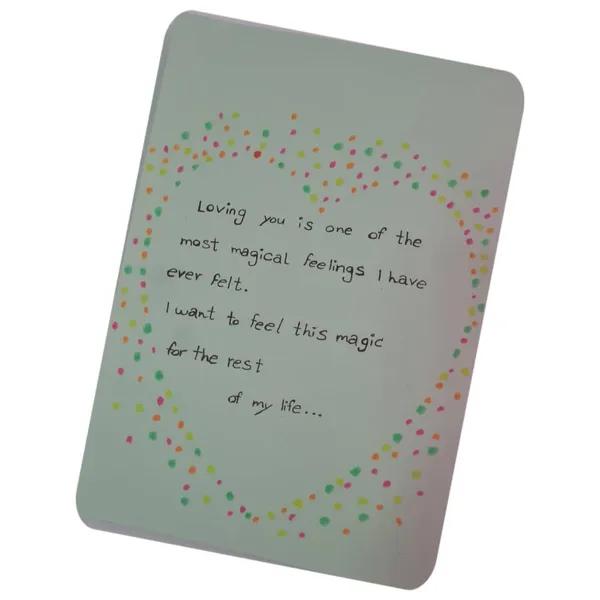 Loving you is one of the
most magical feelings I have
ever felt.
I want to feel this magic
for the rest
of my life...